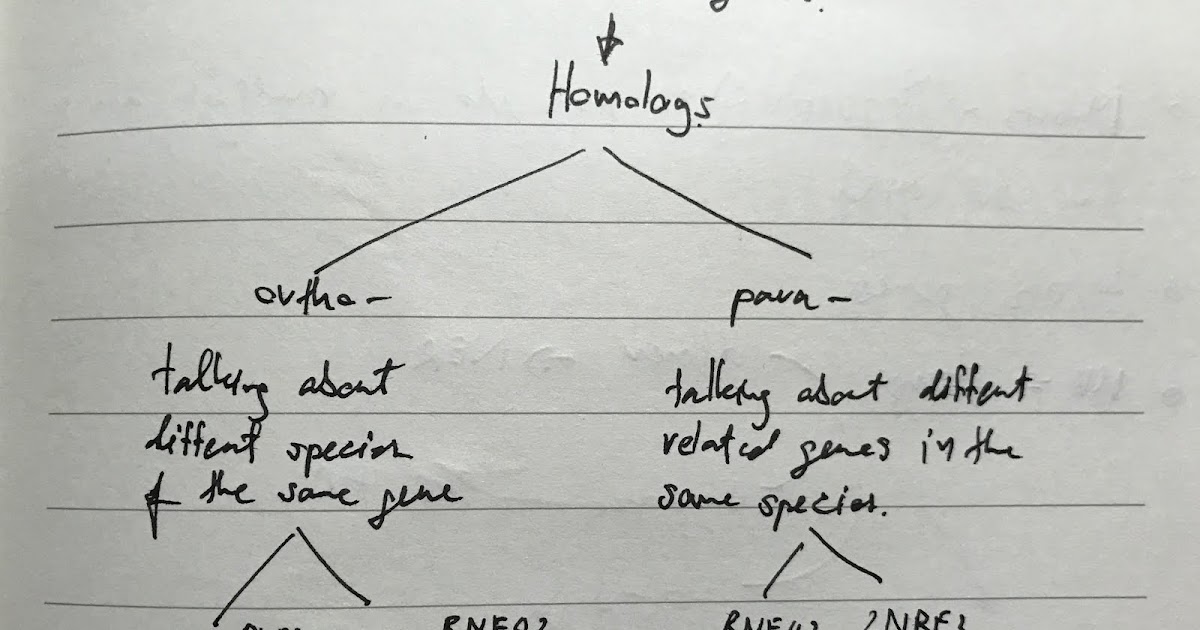 Homologs
ortho- para-
talking about
diffent species
of the same gene
talking about diffent
related genes in the
same species.